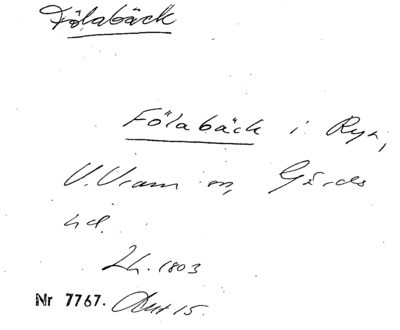 Fölabäck
Fölabäck i Ryn,
V. Vram sn, Gärds
hd.
Lh. 1803
Nr 7767. Akt 15.